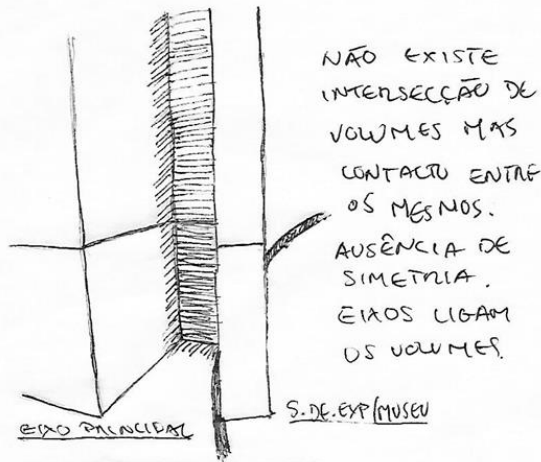 NÃO EXISTE
INTERSECÇÃO DE
VOLUMES MAS
CONTACTO ENTRE
OS MESMOS.
AUSÊNCIA DE
SIMETRIA.
EIXOS LIGAM
OS VOLUMES.
EIXO PRINCIPAL
S. DE. EXP/MUSEU